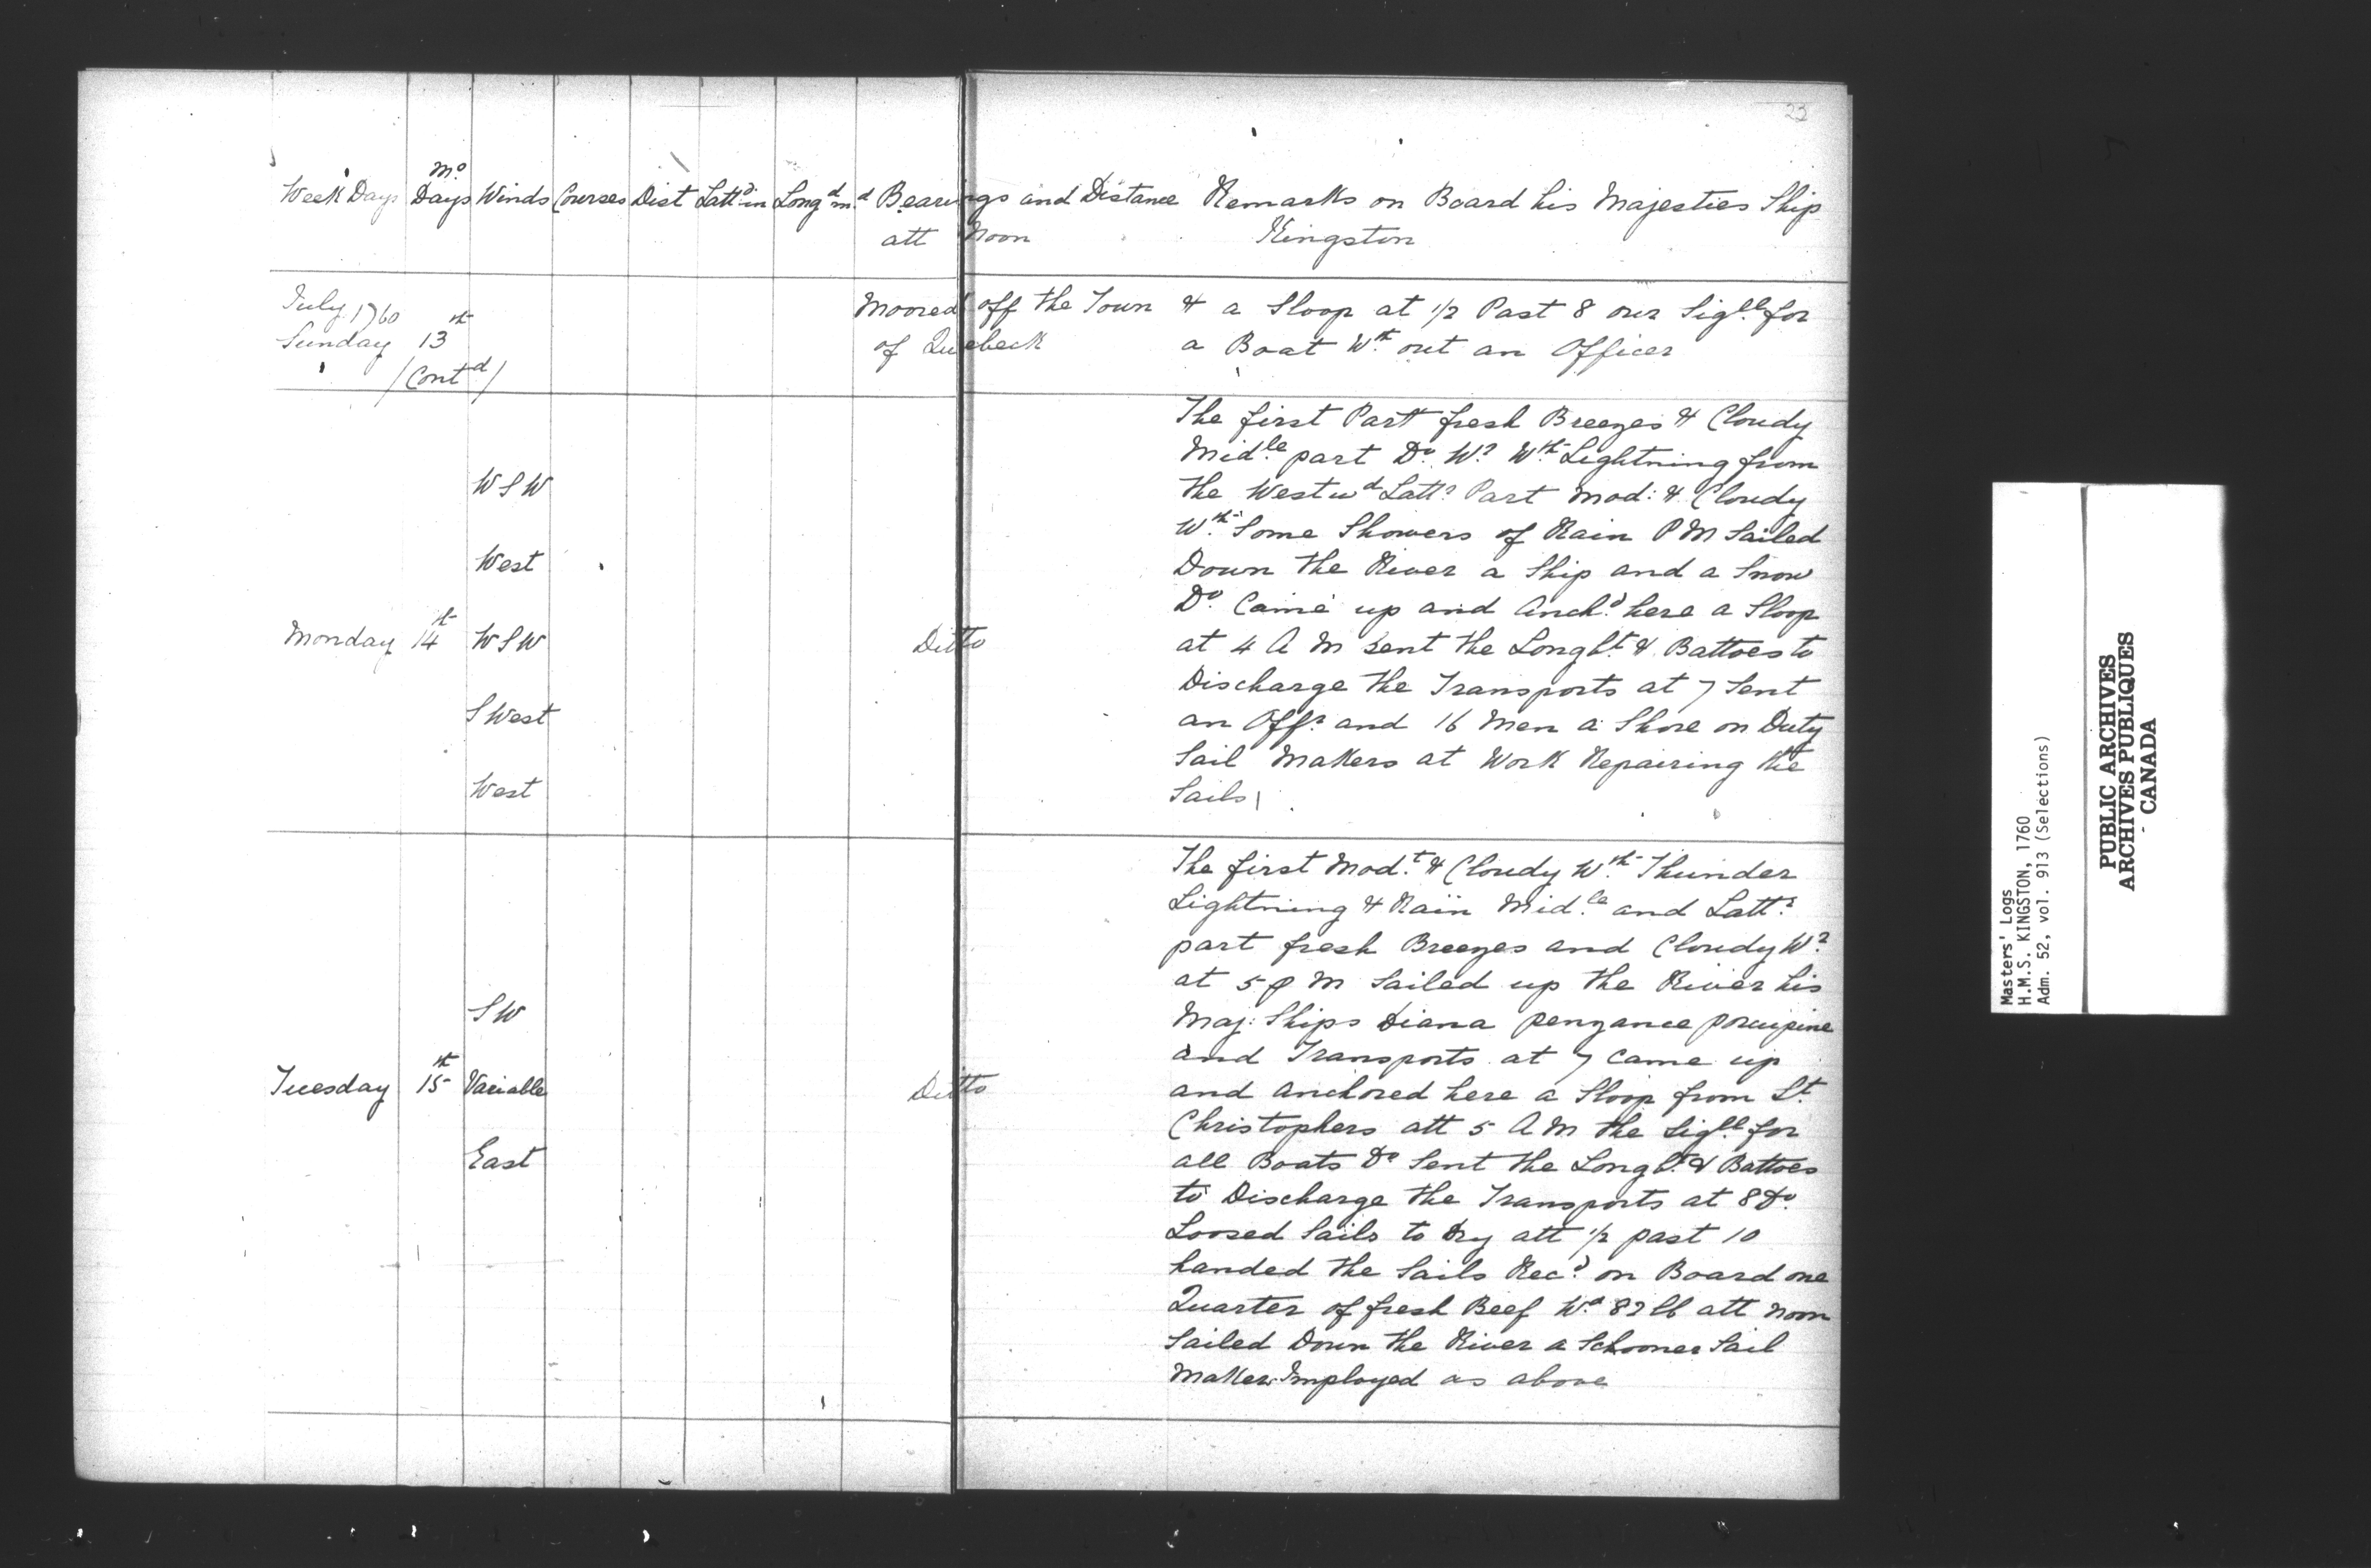 23
Week Days Mo Days Winds Courses Dist Lattd in Longd in d Bearings and Distance att Noon Remarks on Board his Majesties Ship
Kingston
July 1760
Sunday 13th
/Contd/
Moored off the Town
of Quebeck
& a Sloop at 1/2 Past 8 our Sigll for
a Boat Wth out an Officer
Monday 14th
WSW
West
WSW
SWest
West
Ditto
The first Part fresh Breezes & Cloudy
Midle part Do Wr Wth Lightning from
the Westwd Lattr Part Mod: & Cloudy
Wth Some Showers of Rain PM Sailed
Down the River a Ship and a Snow
Do Came up and Anchd here a Sloop
at 4 AM Sent the Longbt & Battoes to
Discharge the Transports at 7 Sent
an Offr and 16 Men a Shore on Duty
Sail Makers at Work Repairing the
Sails
Tuesday 15th
SW
Variable
East
Ditto
The first Modt & Cloudy Wth Thunder
Lightning & Rain Midle and Lattr
part fresh Breezes and Cloudy Wr
at 5 PM Sailed up the River his
Maj: Ships Diana penzance porcupine
and Transports at 7 Came up
and anchored here a Sloop from St
Christophers att 5 AM the Sigll for
all Boats Do Sent the Longbt & Battoes
to Discharge the Transports at 8 Do
Loosed Sails to Dry att 1/2 past 10
handed the Sails Recd on Board one
Quarter of fresh Beef Wd 82 lb att Noon
Sailed Down the River a Schooner Sail
Makers Imployed as above
Masters' Logs
H.M.S. KINGSTON, 1760
Adm. 52, vol. 913 (Selections)
PUBLIC ARCHIVES
ARCHIVES PUBLIQUES
CANADA